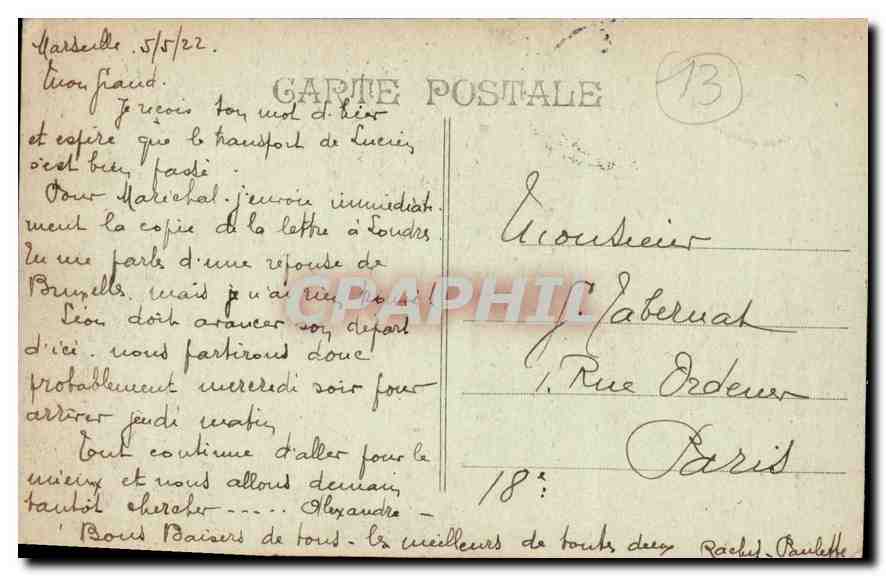 Marseille. 5/5/22.
Mon Grand.
CARTE POSTALE
13
Je reçois ton mot d'hier
et espère que le transport de Lucien
s'est bien passé.
Pour Maréchal. j'envoie immédiate-
ment la copie de la lettre à Londres.
Tu me parles d'une réponse de
Bruxelles, mais je n'ai rien
Léon doit avancer son départ
d'ici. nous partirons donc
probablement mercredi soir pour
arriver jeudi matin
Tout continue d'aller pour le
mieux et nous allons demain
tantôt chercher ----- Alexandre -
Bons Baisers de tous - les meilleurs de toutes deux
Rachel - Paulette
Monsieur
G. Tabernat
1. Rue Ordener
Paris
18e
CPAPHIL